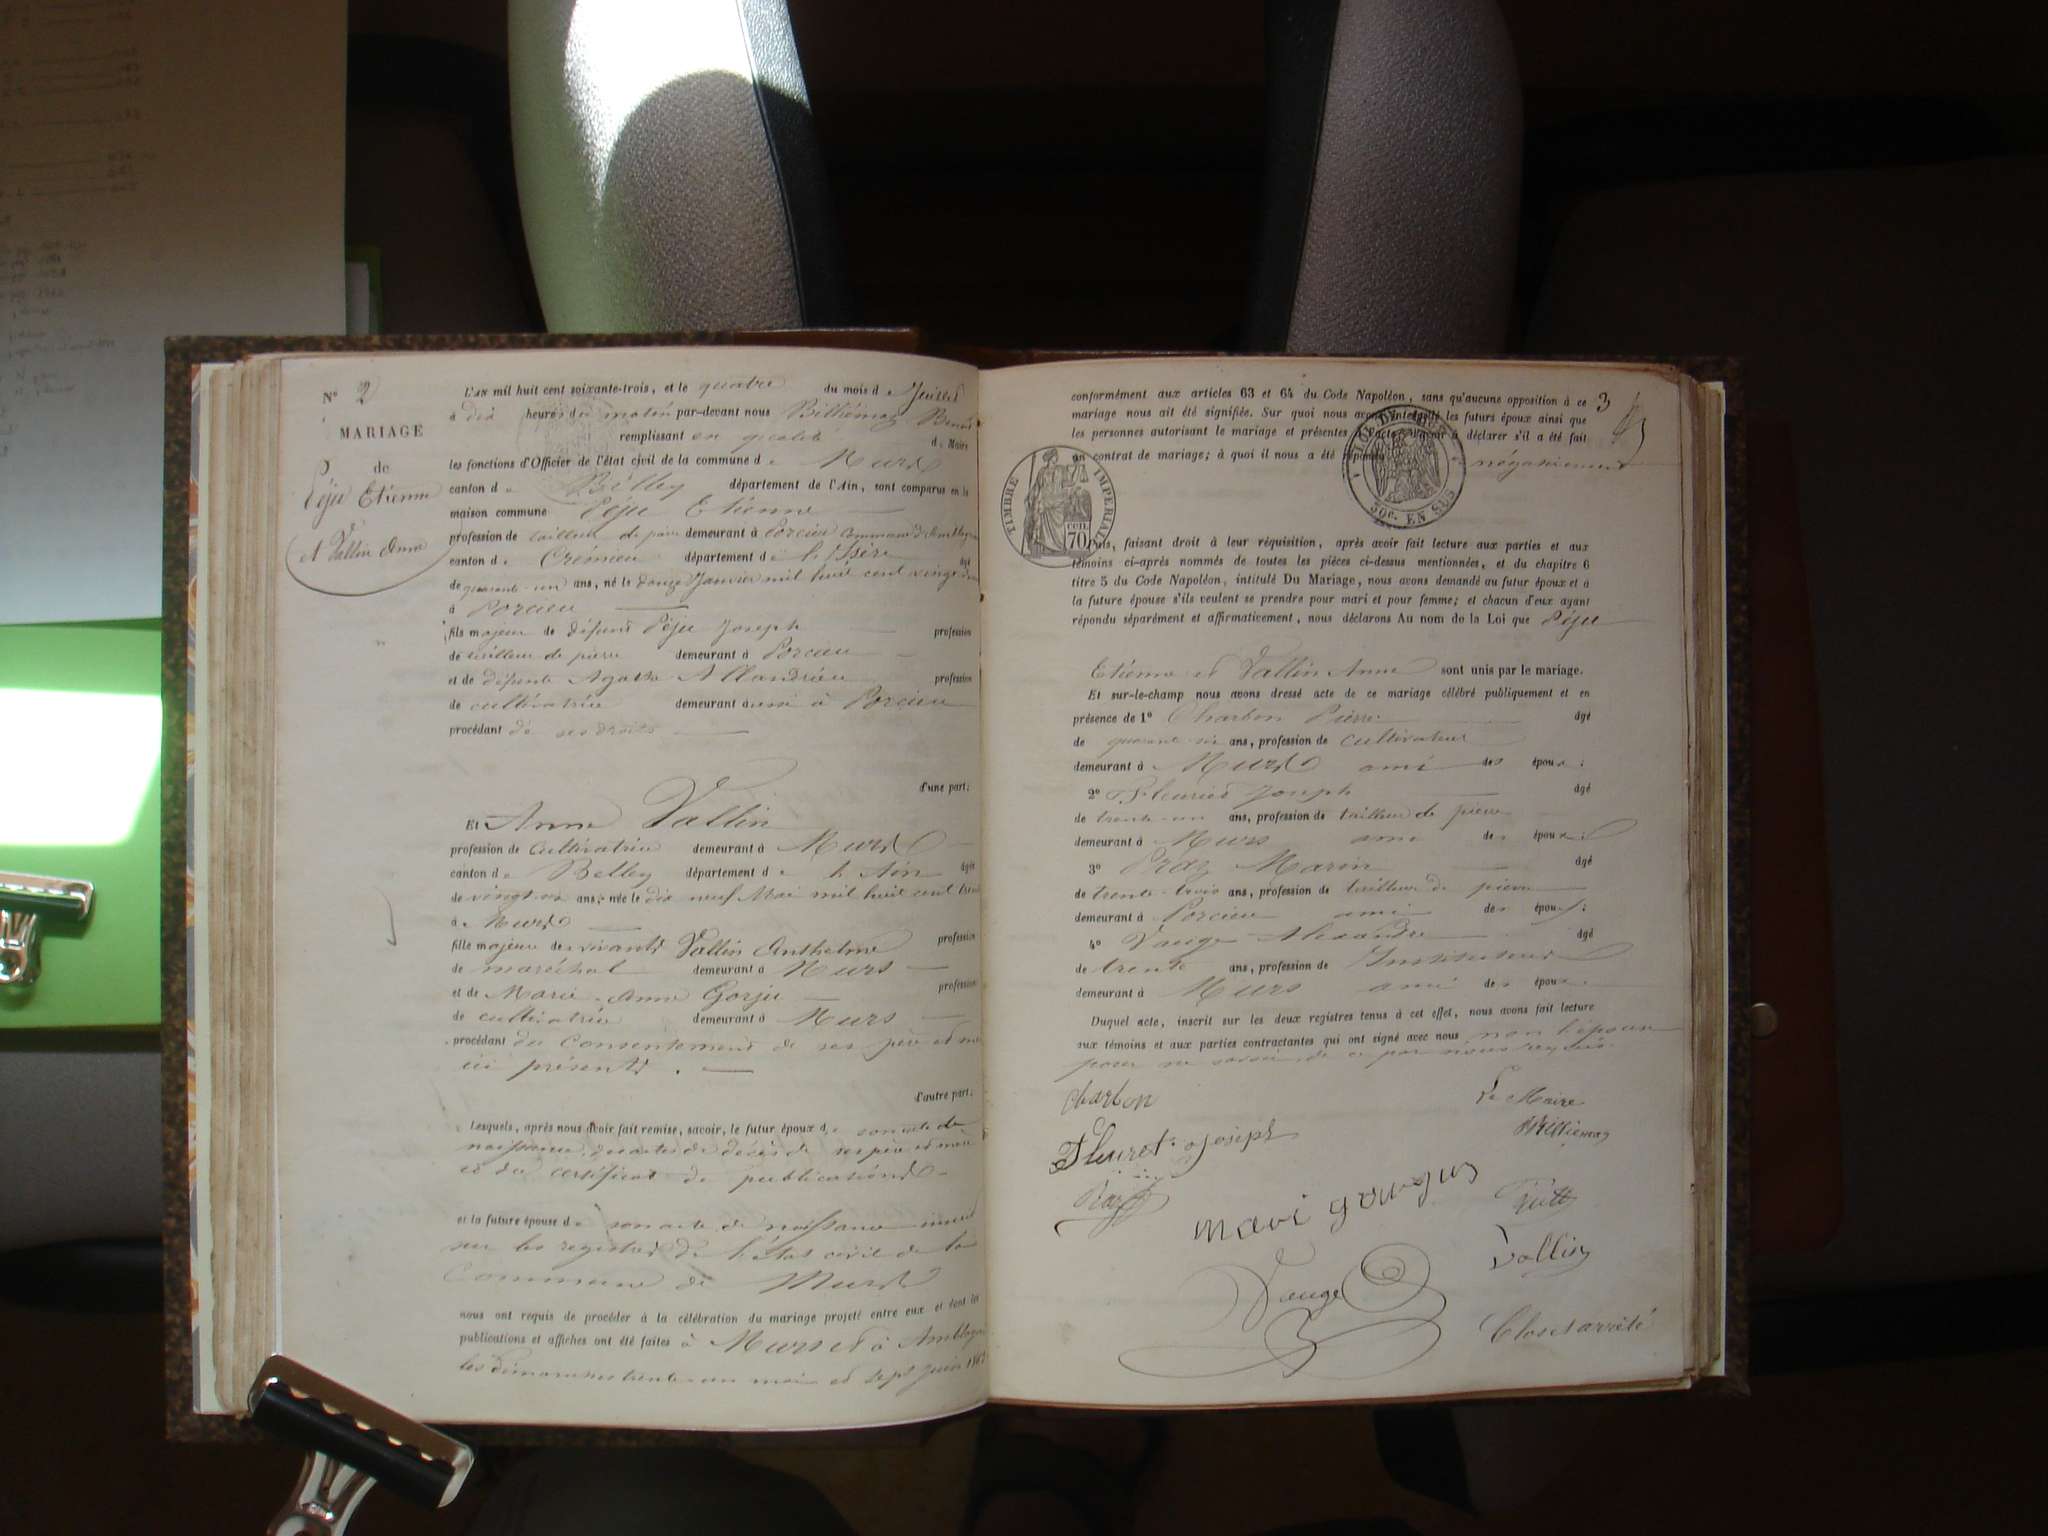 N° 2
MARIAGE
de
Péju Etienne
et Vallin Anne
L'AN mil huit cent soixante-trois, et le quatre du mois de Juillet
à dix heures du matin par-devant nous Billiémaz Benoit
remplissant en qualité de Maire
les fonctions d'Officier de l'état civil de la commune de Murs
canton de Belley département de l'Ain, sont comparus en la
maison commune Péju Etienne
profession de tailleur de pierre demeurant à Porcieu commune d'Amblagnieu
canton de Crémieu département de l'Isère âgé
de quarante-un ans, né le douze Janvier mil huit cent vingt-deux
à Porcieu
fils majeur de défunt Péju Joseph profession
de tailleur de pierre demeurant à Porcieu
et de défunte Agathe Allandrieu profession
de cultivatrice demeurant aussi à Porcieu
procédant de ses droits
d'une part;
Et Anne Vallin
profession de cultivatrice demeurant à Murs
canton de Belley département de l'Ain âgée
de vingt ans, née le dix neuf Mai mil huit cent
à Murs
fille majeure des vivants Vallin Anthelme profession
de maréchal demeurant à Murs
et de Marie-Anne Gorju profession
de cultivatrice demeurant à Murs
procédant du consentement de ses père et mère
ici présents.
d'autre part;
Lesquels, après nous avoir fait remise, savoir, le futur époux de son acte de
naissance, des actes de décès de ses père et mère
et du certificat de publications
et la future épouse de son acte de naissance inscrit
sur les registres de l'état civil de la
Commune de Murs
nous ont requis de procéder à la célébration du mariage projeté entre eux et dont les
publications et affiches ont été faites à Murs et à Amblagnieu
les dimanches trente-un mai et sept juin 1863
3
conformément aux articles 63 et 64 du Code Napoléon, sans qu'aucune opposition à ce
mariage nous ait été signifiée. Sur quoi nous avons interpellé les futurs époux ainsi que
les personnes autorisant le mariage et présentes à l'acte d'avoir à déclarer s'il a été fait
un contrat de mariage; à quoi il nous a été répondu négativement
TIMBRE IMPERIAL
CEN. 70
50c. EN SUS
Puis, faisant droit à leur réquisition, après avoir fait lecture aux parties et aux
témoins ci-après nommés de toutes les pièces ci-dessus mentionnées, et du chapitre 6
titre 5 du Code Napoléon, intitulé Du Mariage, nous avons demandé au futur époux et à
la future épouse s'ils veulent se prendre pour mari et pour femme; et chacun d'eux ayant
répondu séparément et affirmativement, nous déclarons Au nom de la Loi que Péju
Etienne et Vallin Anne sont unis par le mariage.
Et sur-le-champ nous avons dressé acte de ce mariage célébré publiquement et en
présence de 1° Charbon Pierre âgé
de quarante-six ans, profession de cultivateur
demeurant à Murs ami des époux;
2° Fleuriet Joseph âgé
de trente-un ans, profession de tailleur de pierre
demeurant à Murs ami des époux;
3° Praz Marin âgé
de trente-trois ans, profession de tailleur de pierre
demeurant à Porcieu ami des époux;
4° Vauge Alexandre âgé
de trente ans, profession de Instituteur
demeurant à Murs ami des époux
Duquel acte, inscrit sur les deux registres tenus à cet effet, nous avons fait lecture
aux témoins et aux parties contractantes qui ont signé avec nous non l'épouse
pour ne savoir, de ce par nous requis.
Charbon
Le Maire
Billiemaz
Fleuret Joseph
Praz
Vallin
Vauge
Clos et arrêté